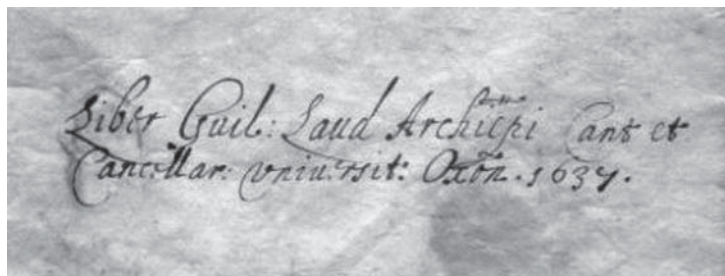 Liber Guil: Laud Archiēpi Cant et
Cancellar: vniuersit: Oxōn. 1637.